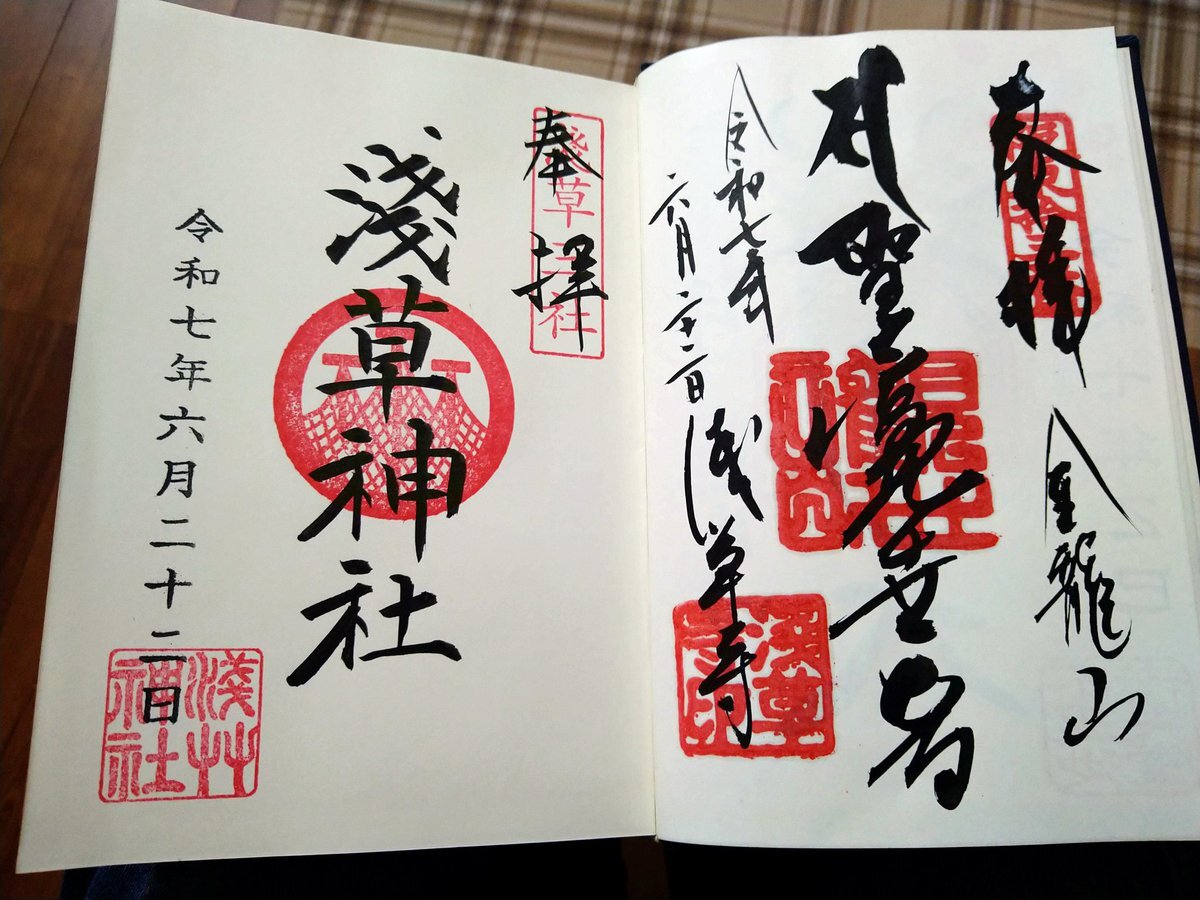 奉拝
金龍山
聖観世音
令和七年
六月二十二日
浅草寺
坂東拾三番
奉拝
淺草三社
淺草神社
令和七年六月二十二日
淺艸神社